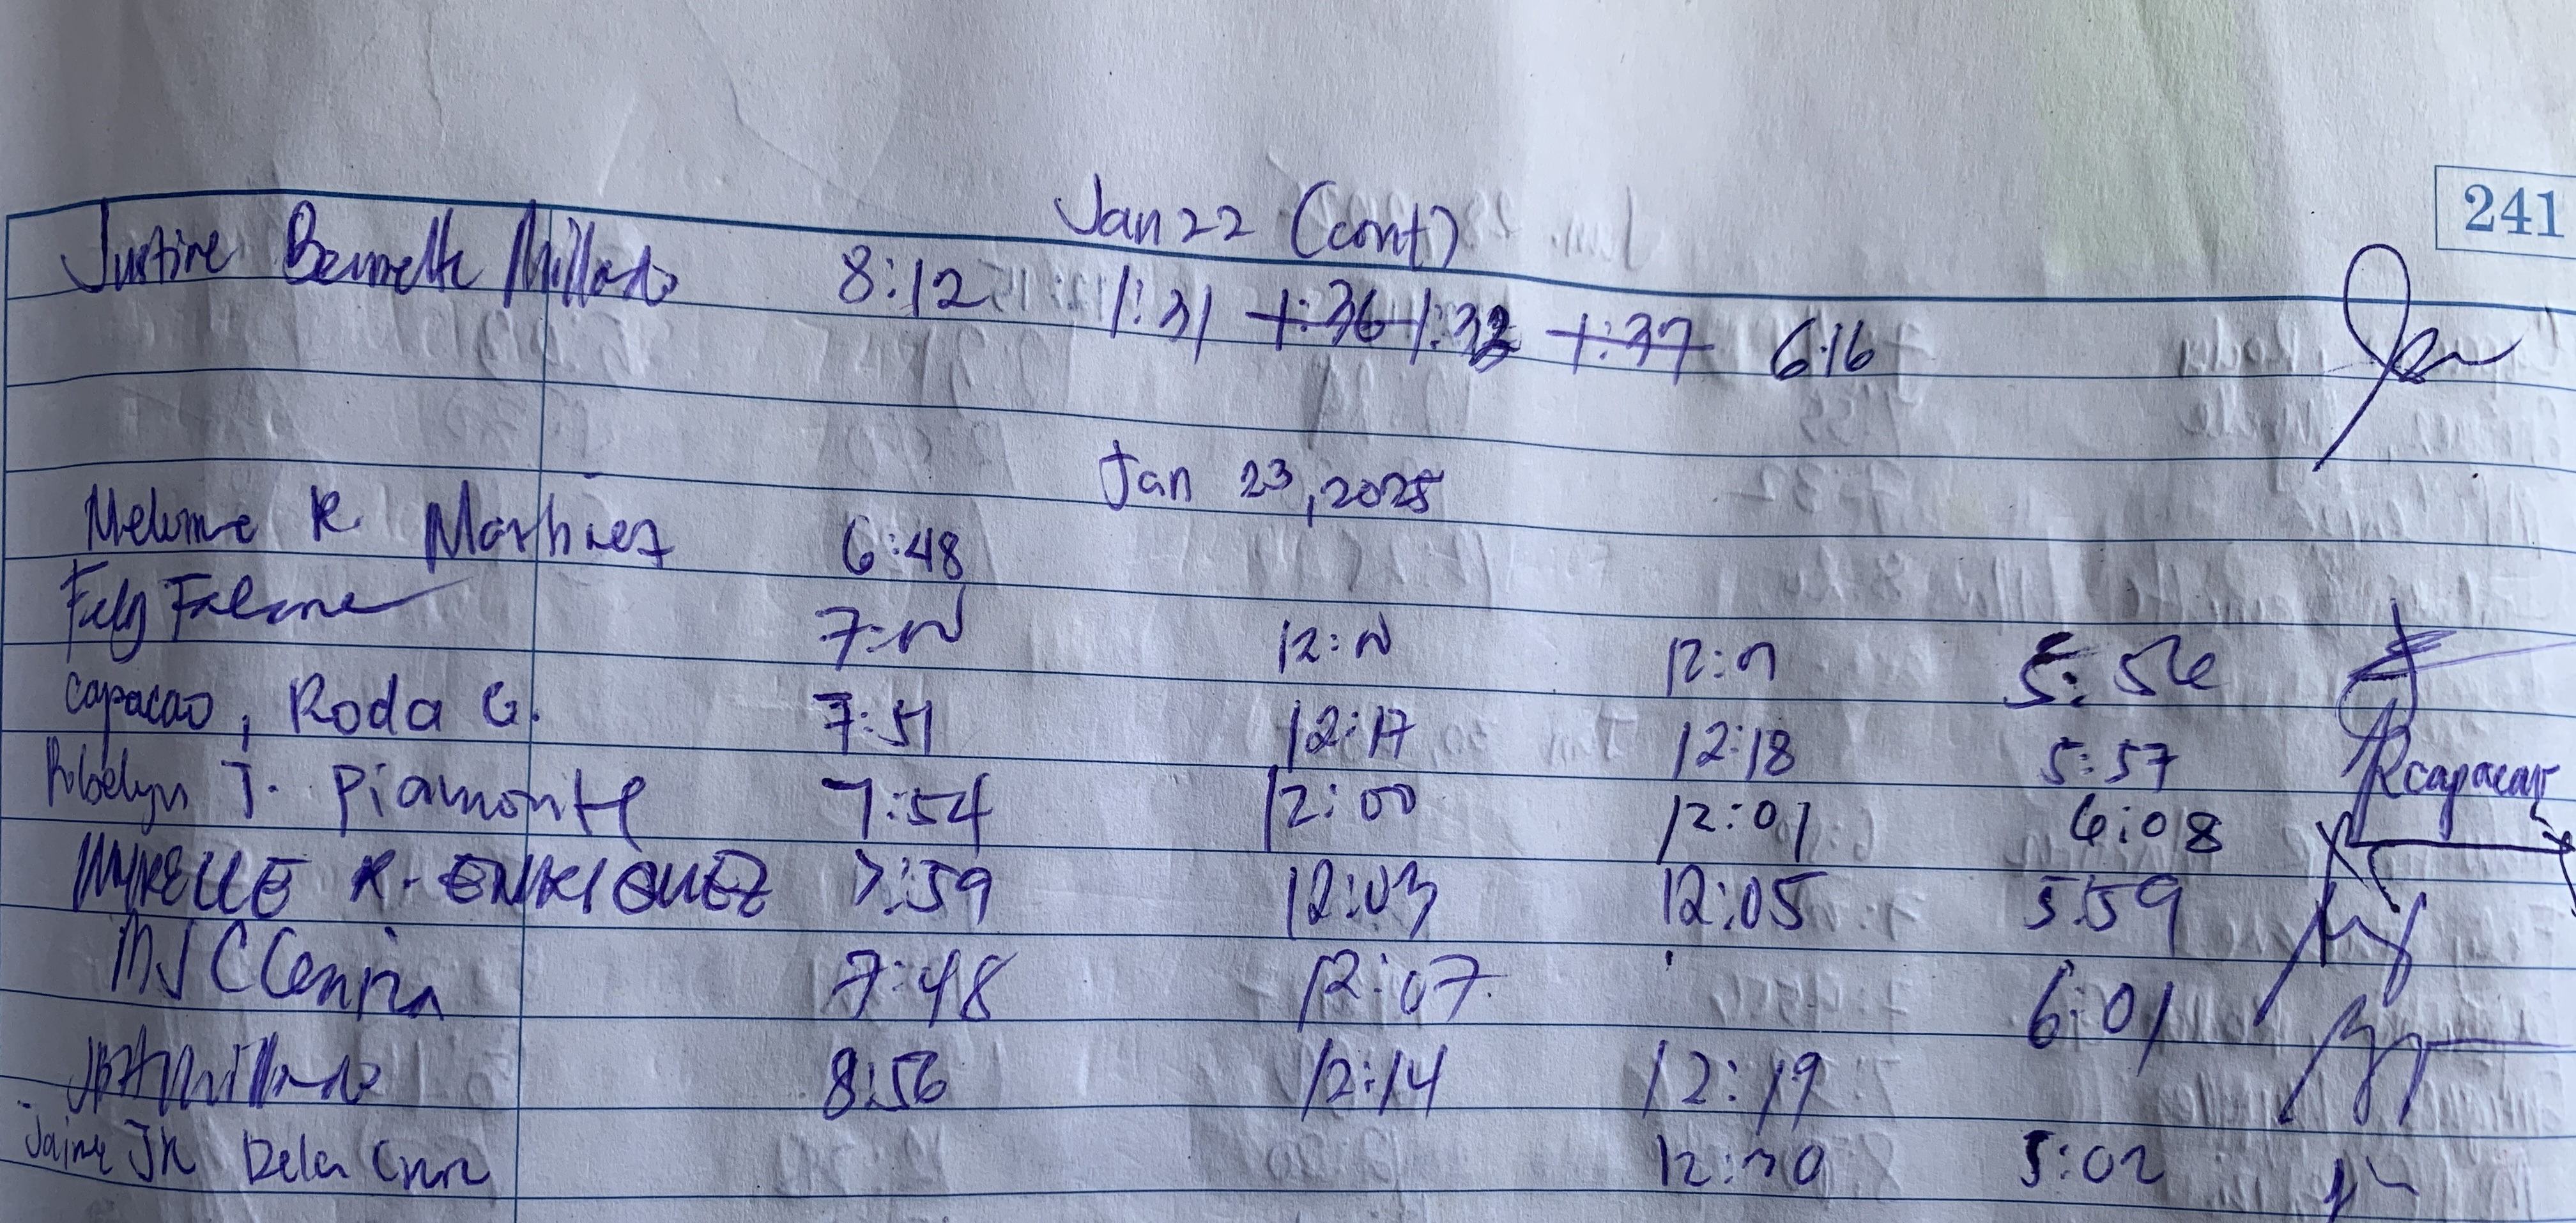 241
Jan 22 (cont)
Justine Bernette Millado 8:12 1:31 1:36 1:32 1:37 6:16
Jan 23, 2025
R Martinez 6:48
7: 12: 12: 5:56
Capacao, Roda G. 7:51 12:17 12:18 5:57 Rcapacao
Robelyn J. Piamonte 7:54 12:00 12:01 6:08
MYRELLE R. ENRIQUEZ 7:59 12:03 12:05 5:59
MJC Cenina 7:48 12:07 6:01
JBAMillado 8:56 12:14 12:19
Jaime JR Dela Cruz 12:30 5:02